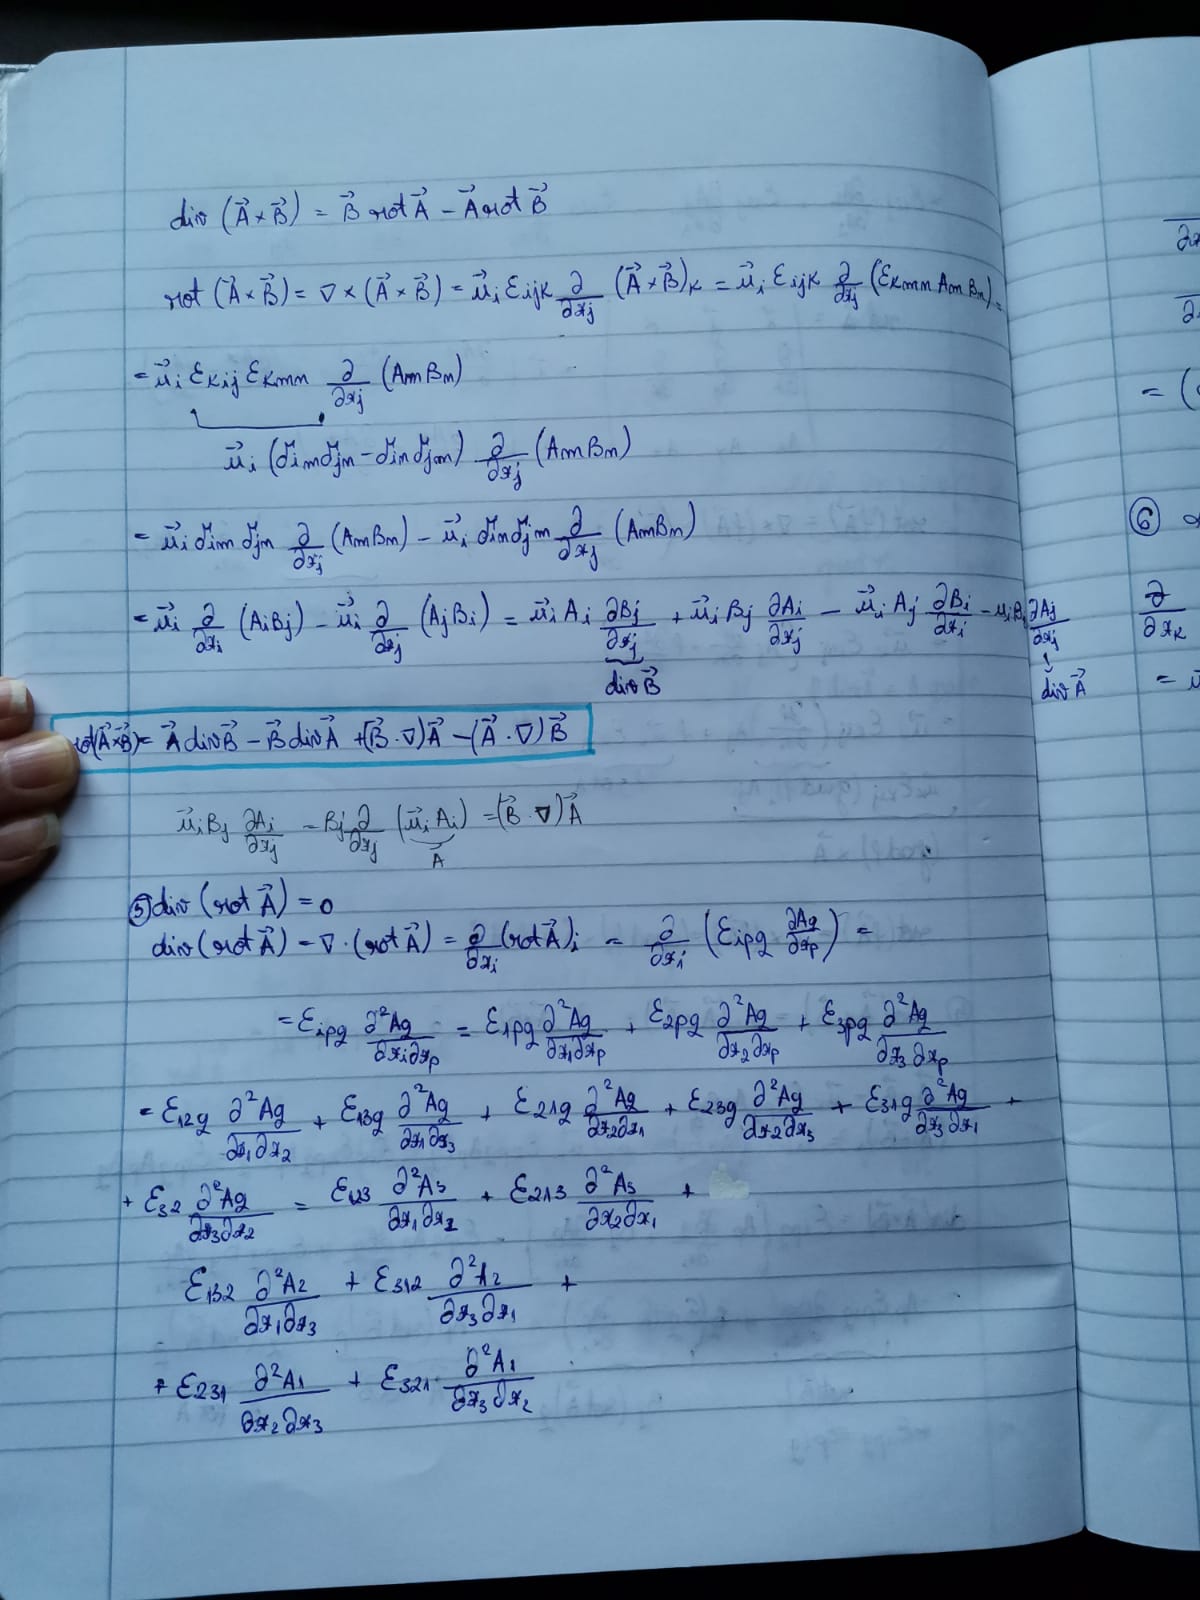 div (A⃗ × B⃗) = B⃗ rot A⃗ − A⃗ rot B⃗
rot (A⃗ × B⃗) = ∇ × (A⃗ × B⃗) = u⃗i εijk ∂/∂xj (A⃗ × B⃗)k = u⃗i εijk ∂/∂xj (εkmn Am Bn) =
= u⃗i εkij εkmn ∂/∂xj (AmBn)
u⃗i (δim δjn − δin δjm) ∂/∂xj (AmBn)
= u⃗i δim δjn ∂/∂xj (AmBn) − u⃗i δin δjm ∂/∂xj (AmBn)
= u⃗i ∂/∂xj (AiBj) − u⃗i ∂/∂xj (AjBi) = u⃗i Ai ∂Bj/∂xj + u⃗i Bj ∂Ai/∂xj − u⃗i Aj ∂Bi/∂xi − uiBi ∂Aj/∂xj
div B⃗ div A⃗
rot(A⃗×B⃗) = A⃗ div B⃗ − B⃗ div A⃗ + (B⃗ · ∇) A⃗ − (A⃗ · ∇) B⃗
u⃗i Bj ∂Ai/∂xj = Bj ∂/∂xj (u⃗i Ai) = (B⃗ · ∇) A⃗
A⃗
⑤ div (rot A⃗) = 0
div (rot A⃗) = ∇ · (rot A⃗) = ∂/∂xi (rot A⃗)i = ∂/∂xi (εipq ∂Aq/∂xp) =
= εipq ∂²Aq/∂xi∂xp = ε1pq ∂²Aq/∂x1∂xp + ε2pq ∂²Aq/∂x2∂xp + ε3pq ∂²Aq/∂x3∂xp
= ε12q ∂²Aq/∂x1∂x2 + ε13q ∂²Aq/∂x1∂x3 + ε21q ∂²Aq/∂x2∂x1 + ε23q ∂²Aq/∂x2∂x3 + ε31q ∂²Aq/∂x3∂x1 +
+ ε32 ∂²Aq/∂x3∂x2 = ε123 ∂²A3/∂x1∂x2 + ε213 ∂²A3/∂x2∂x1 +
ε132 ∂²A2/∂x1∂x3 + ε312 ∂²A2/∂x3∂x1 +
+ ε231 ∂²A1/∂x2∂x3 + ε321 ∂²A1/∂x3∂x2
= (
⑥
∂/∂xk